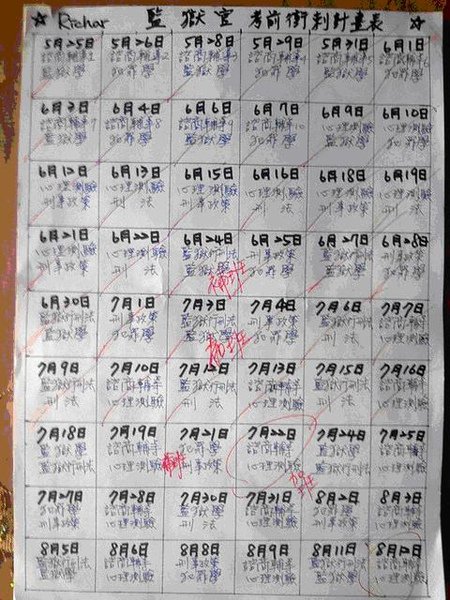 ☆ Richar 監獄官 考前衝刺計畫表 ☆
5月25日 5月26日 5月28日 5月29日 5月31日 6月1日
諮商輔導1 諮商輔導2 諮商輔導3 諮商輔導4 諮商輔導5 諮商輔導6
監獄學 犯罪學 監獄學 犯罪學 監獄學 犯罪學
6月3日 6月4日 6月6日 6月7日 6月9日 6月10日
諮商輔導7 諮商輔導8 諮商輔導9 諮商輔導10 心理測驗 心理測驗
監獄學 犯罪學 監獄學 犯罪學
6月12日 6月13日 6月15日 6月16日 6月18日 6月19日
心理測驗 心理測驗 心理測驗 心理測驗 心理測驗 心理測驗
刑事政策 刑法 刑事政策 刑法 刑事政策 刑法
6月21日 6月22日 6月24日 6月25日 6月27日 6月28日
心理測驗 心理測驗 監獄學 刑事政策 監獄學 刑事政策
刑事政策 刑法 犯罪學 犯罪學
補班
6月30日 7月1日 7月3日 7月4日 7月6日 7月7日
監獄學 刑事政策 監獄學 刑事政策 監獄學 刑事政策
犯罪學 犯罪學
補班
7月9日 7月10日 7月12日 7月13日 7月15日 7月16日
監獄行刑法 諮商輔導 監獄行刑法 諮商輔導 監獄行刑法 諮商輔導
刑法 心理測驗 刑法 心理測驗 刑法 心理測驗
7月18日 7月19日 7月21日 7月22日 7月24日 7月25日
監獄學 諮商輔導 監獄學 諮商輔導 監獄學 諮商輔導
監獄行刑法 心理測驗 刑事政策 心理測驗 監獄行刑法 心理測驗
補班 加班
7月27日 7月28日 7月30日 7月31日 8月2日 8月3日
犯罪學 諮商輔導 刑事政策 諮商輔導 犯罪學 諮商輔導
刑事政策 心理測驗 刑法 心理測驗 刑事政策 心理測驗
8月5日 8月6日 8月8日 8月9日 8月11日 8月12日
監獄行刑法 諮商輔導 刑事政策 諮商輔導 監獄行刑法 諮商輔導
監獄學 心理測驗 犯罪學 心理測驗 監獄學 心理測驗